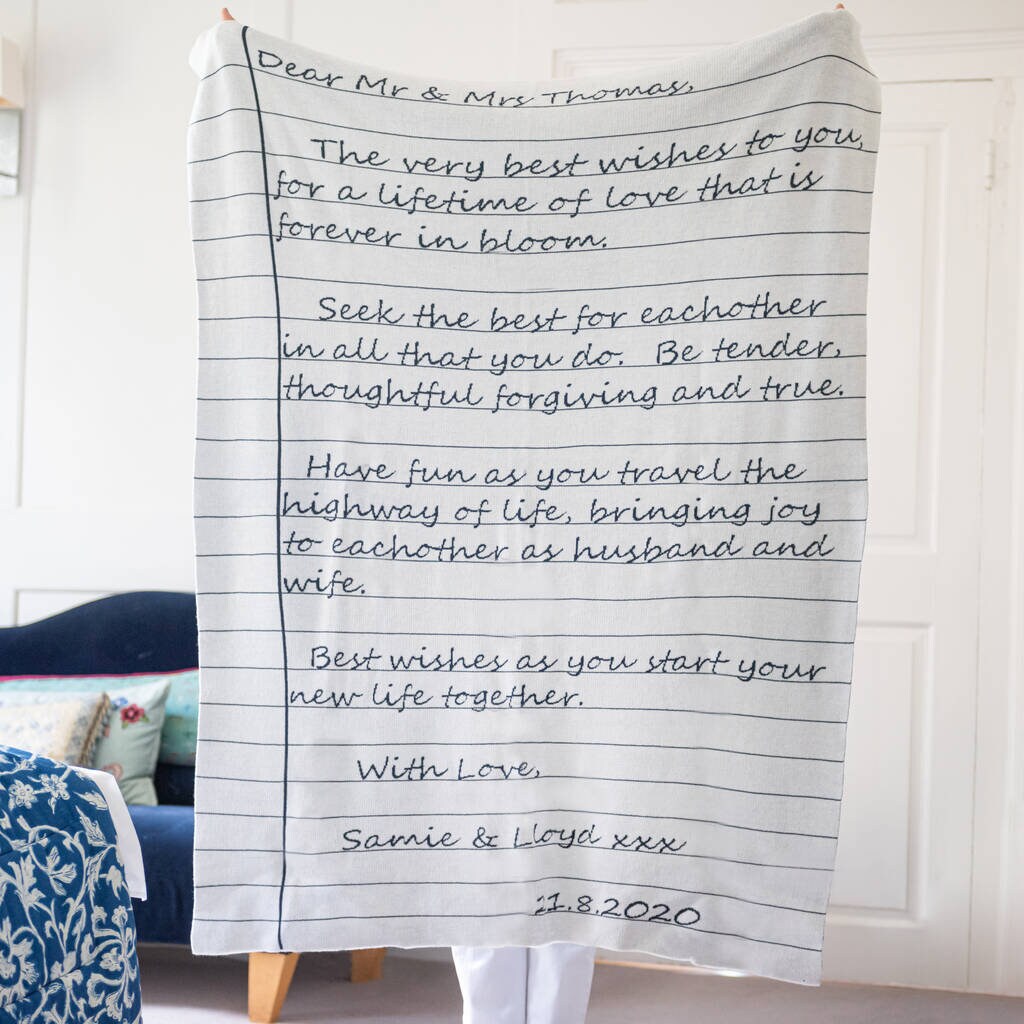 Dear Mr & Mrs Thomas,
The very best wishes to you,
for a lifetime of love that is
forever in bloom.
Seek the best for eachother
in all that you do. Be tender,
thoughtful forgiving and true.
Have fun as you travel the
highway of life, bringing joy
to eachother as husband and
wife.
Best wishes as you start your
new life together.
With Love,
Samie & Lloyd xxx
11.8.2020